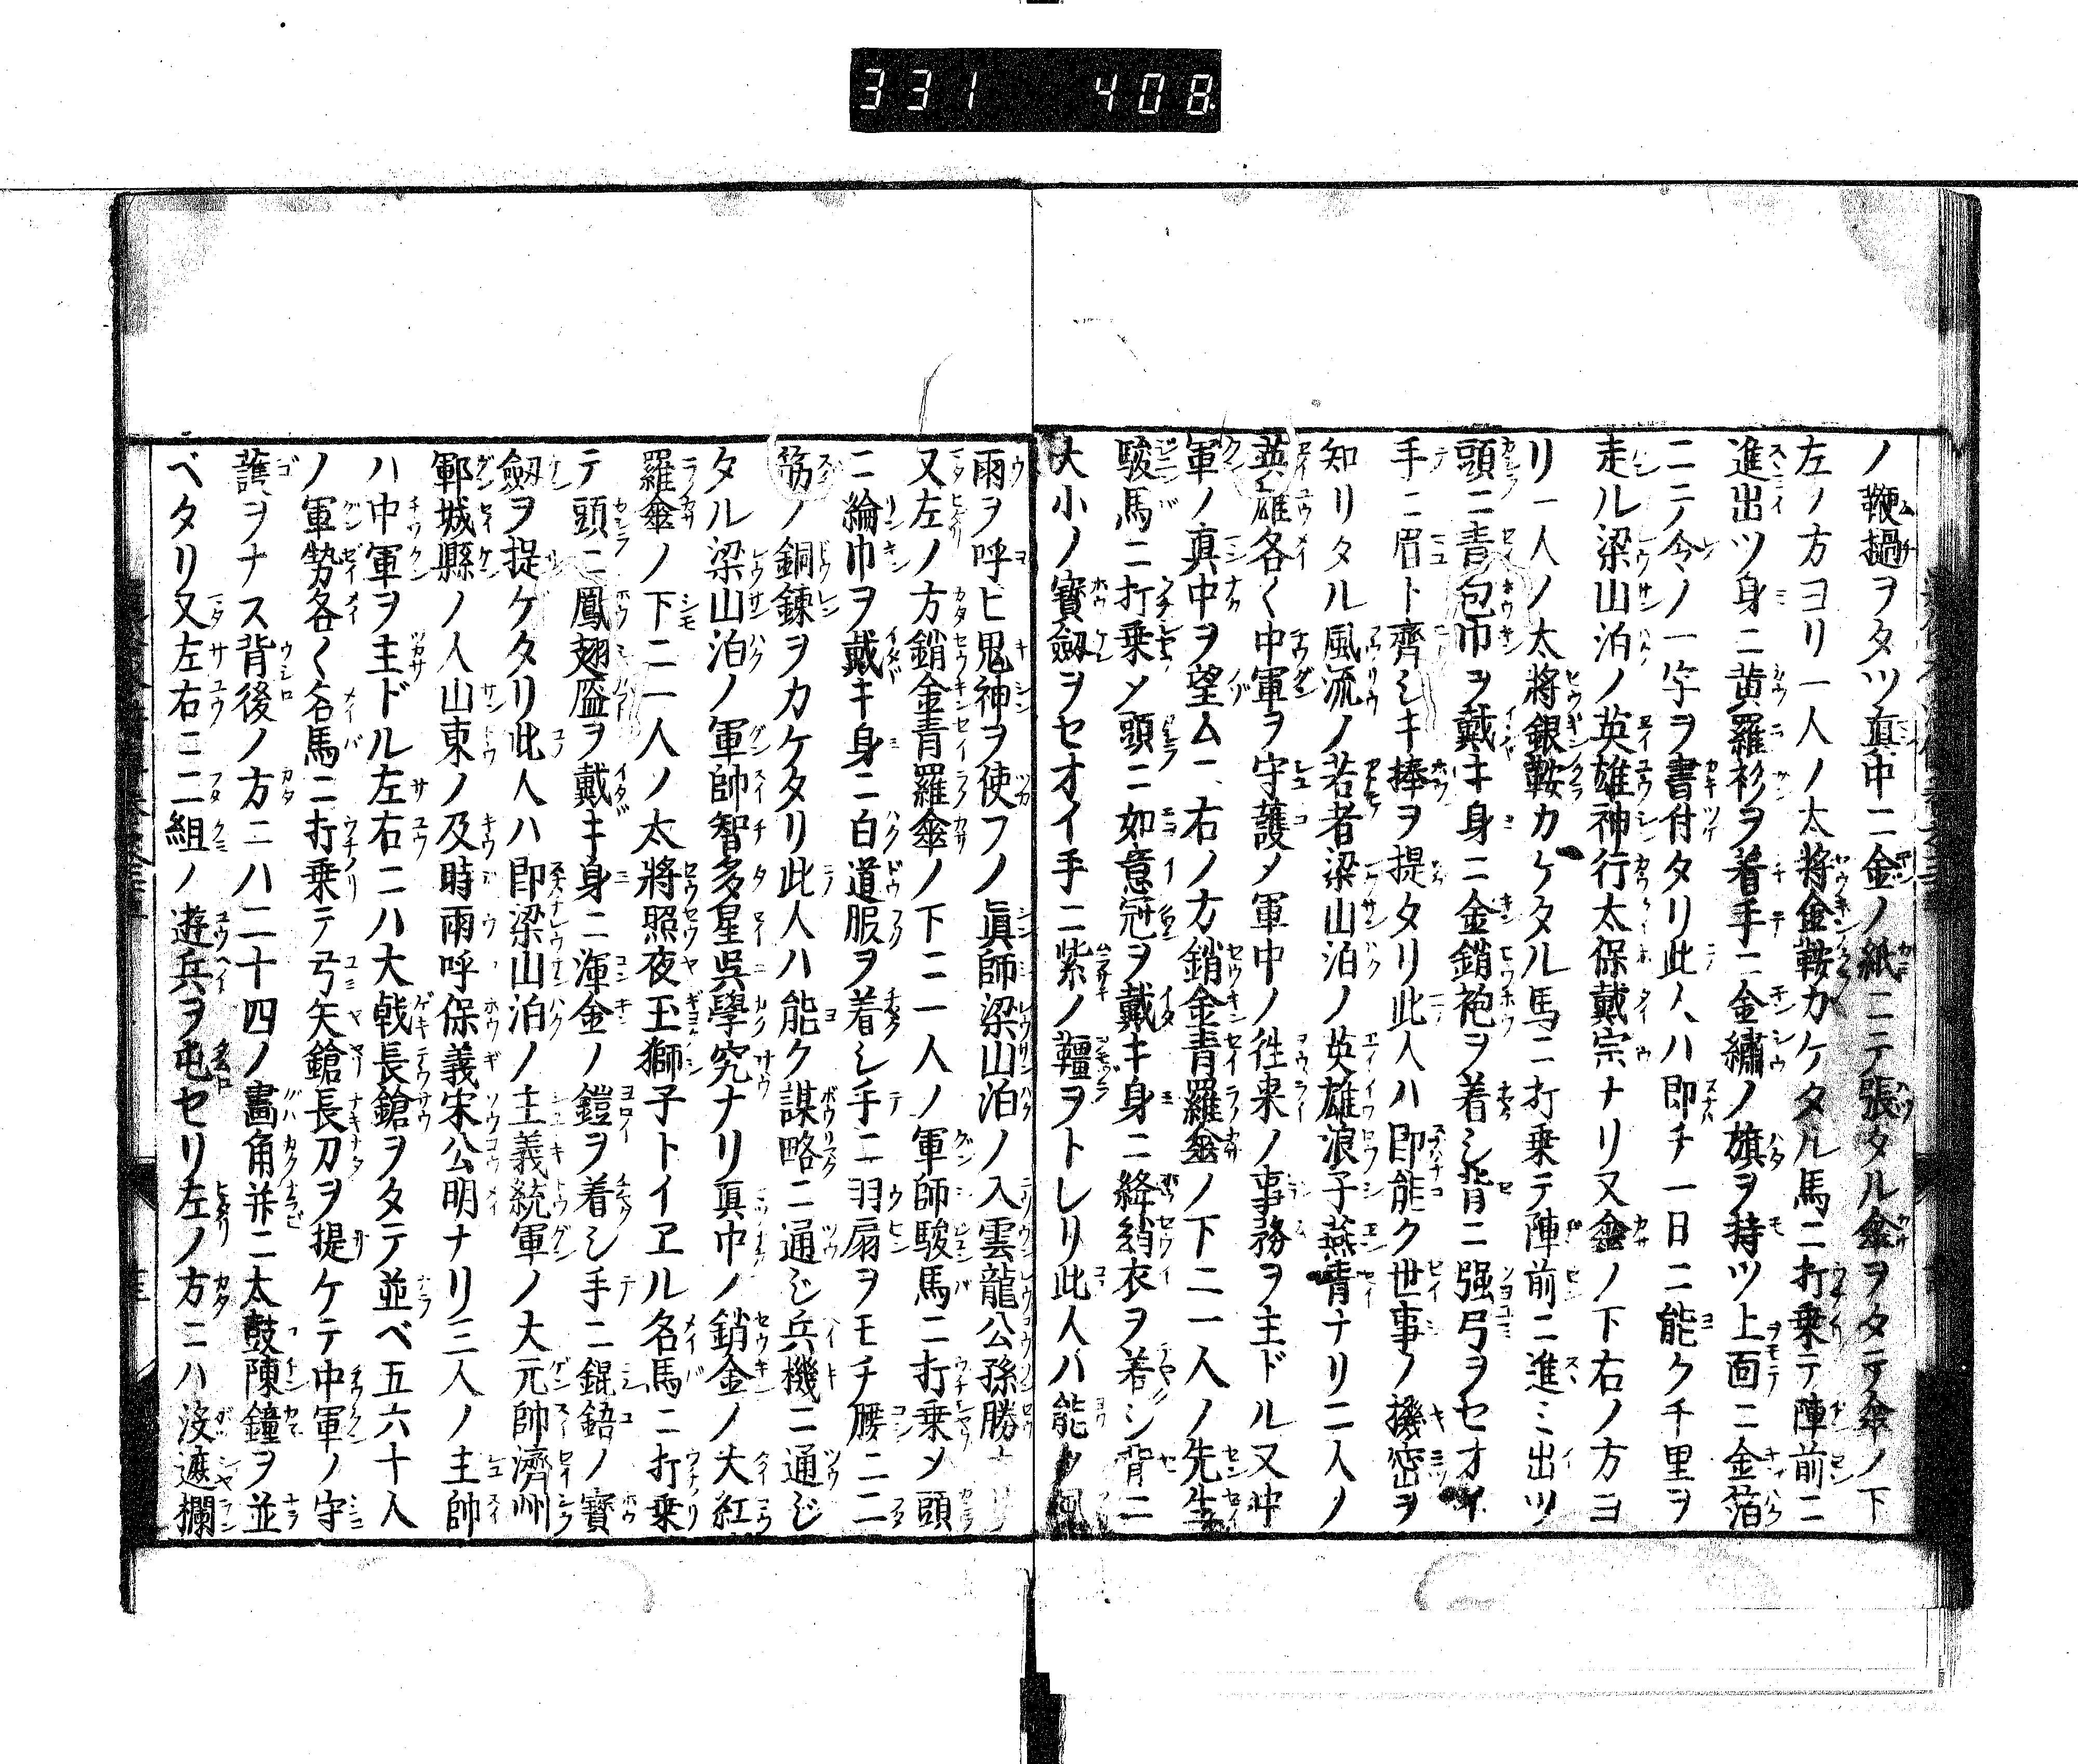 331 408
ノ鞭撾ヲタツ真中ニ金ノ紙ニテ張タル傘ヲタテ傘ノ下
左ノ方ヨリ一人ノ太將金鞍カケタル馬ニ打乗テ陣前ニ
進出ツ身ニ黄羅衫ヲ着手ニ金繡ノ旗ヲ持ツ上面ニ金箔
ニテ令ノ一字ヲ書付タリ此人ハ即チ一日ニ能ク千里ヲ
走ル梁山泊ノ英雄神行太保戴宗ナリ又傘ノ下右ノ方ヨ
リ一人ノ太將銀鞍カケタル馬ニ打乗テ陣前ニ進ミ出ツ
頭ニ青包巾ヲ戴キ身ニ金銷袍ヲ着シ背ニ强弓ヲセオイ
手ニ眉ト齊シキ捧ヲ提タリ此人ハ即能ク世事ノ機密ヲ
知リタル風流ノ若者梁山泊ノ英雄浪子燕青ナリ二人ノ
英雄各〱中軍ヲ守護メ軍中ノ徃来ノ事務ヲ主ドル又中
軍ノ真中ヲ望ムニ右ノ方銷金青羅傘ノ下ニ一人ノ先生
駿馬ニ打乗メ頭ニ如意冠ヲ戴キ身ニ絳綃衣ヲ着シ背ニ
大小ノ寳劔ヲセオイ手ニ紫ノ韁ヲトレリ此人ハ能ク風
雨ヲ呼ヒ鬼神ヲ使フノ眞師梁山泊ノ入雲龍公孫勝ナリ
又左ノ方銷金青羅傘ノ下ニ一人ノ軍師駿馬ニ打乗メ頭
ニ綸巾ヲ戴キ身ニ白道服ヲ着シ手ニ羽扇ヲモチ腰ニ二
筋ノ銅錬ヲカケタリ此人ハ能ク謀略ニ通ジ兵機ニ通ジ
タル梁山泊ノ軍帥智多星呉學究ナリ真中ノ銷金ノ大紅
羅傘ノ下ニ一人ノ太將照夜玉獅子トイヱル名馬ニ打乗
テ頭ニ鳳翅盔ヲ戴キ身ニ渾金ノ鎧ヲ着シ手ニ錕鋙ノ寳
劔ヲ提ゲタリ此人ハ即梁山泊ノ主義統軍ノ大元帥濟州
鄆城縣ノ人山東ノ及時雨呼保義宋公明ナリ三人ノ主帥
ハ中軍ヲ主ドル左右ニハ大戟長鎗ヲタテ並ベ五六十人
ノ軍勢各〱名馬ニ打乗テ弓矢鎗長刀ヲ提ケテ中軍ノ守
護ヲナス背後ノ方ニハ二十四ノ畵角并ニ太鼓陳鐘ヲ並
ベタリ又左右ニ二組ノ遊兵ヲ屯セリ左ノ方ニハ沒遮欄